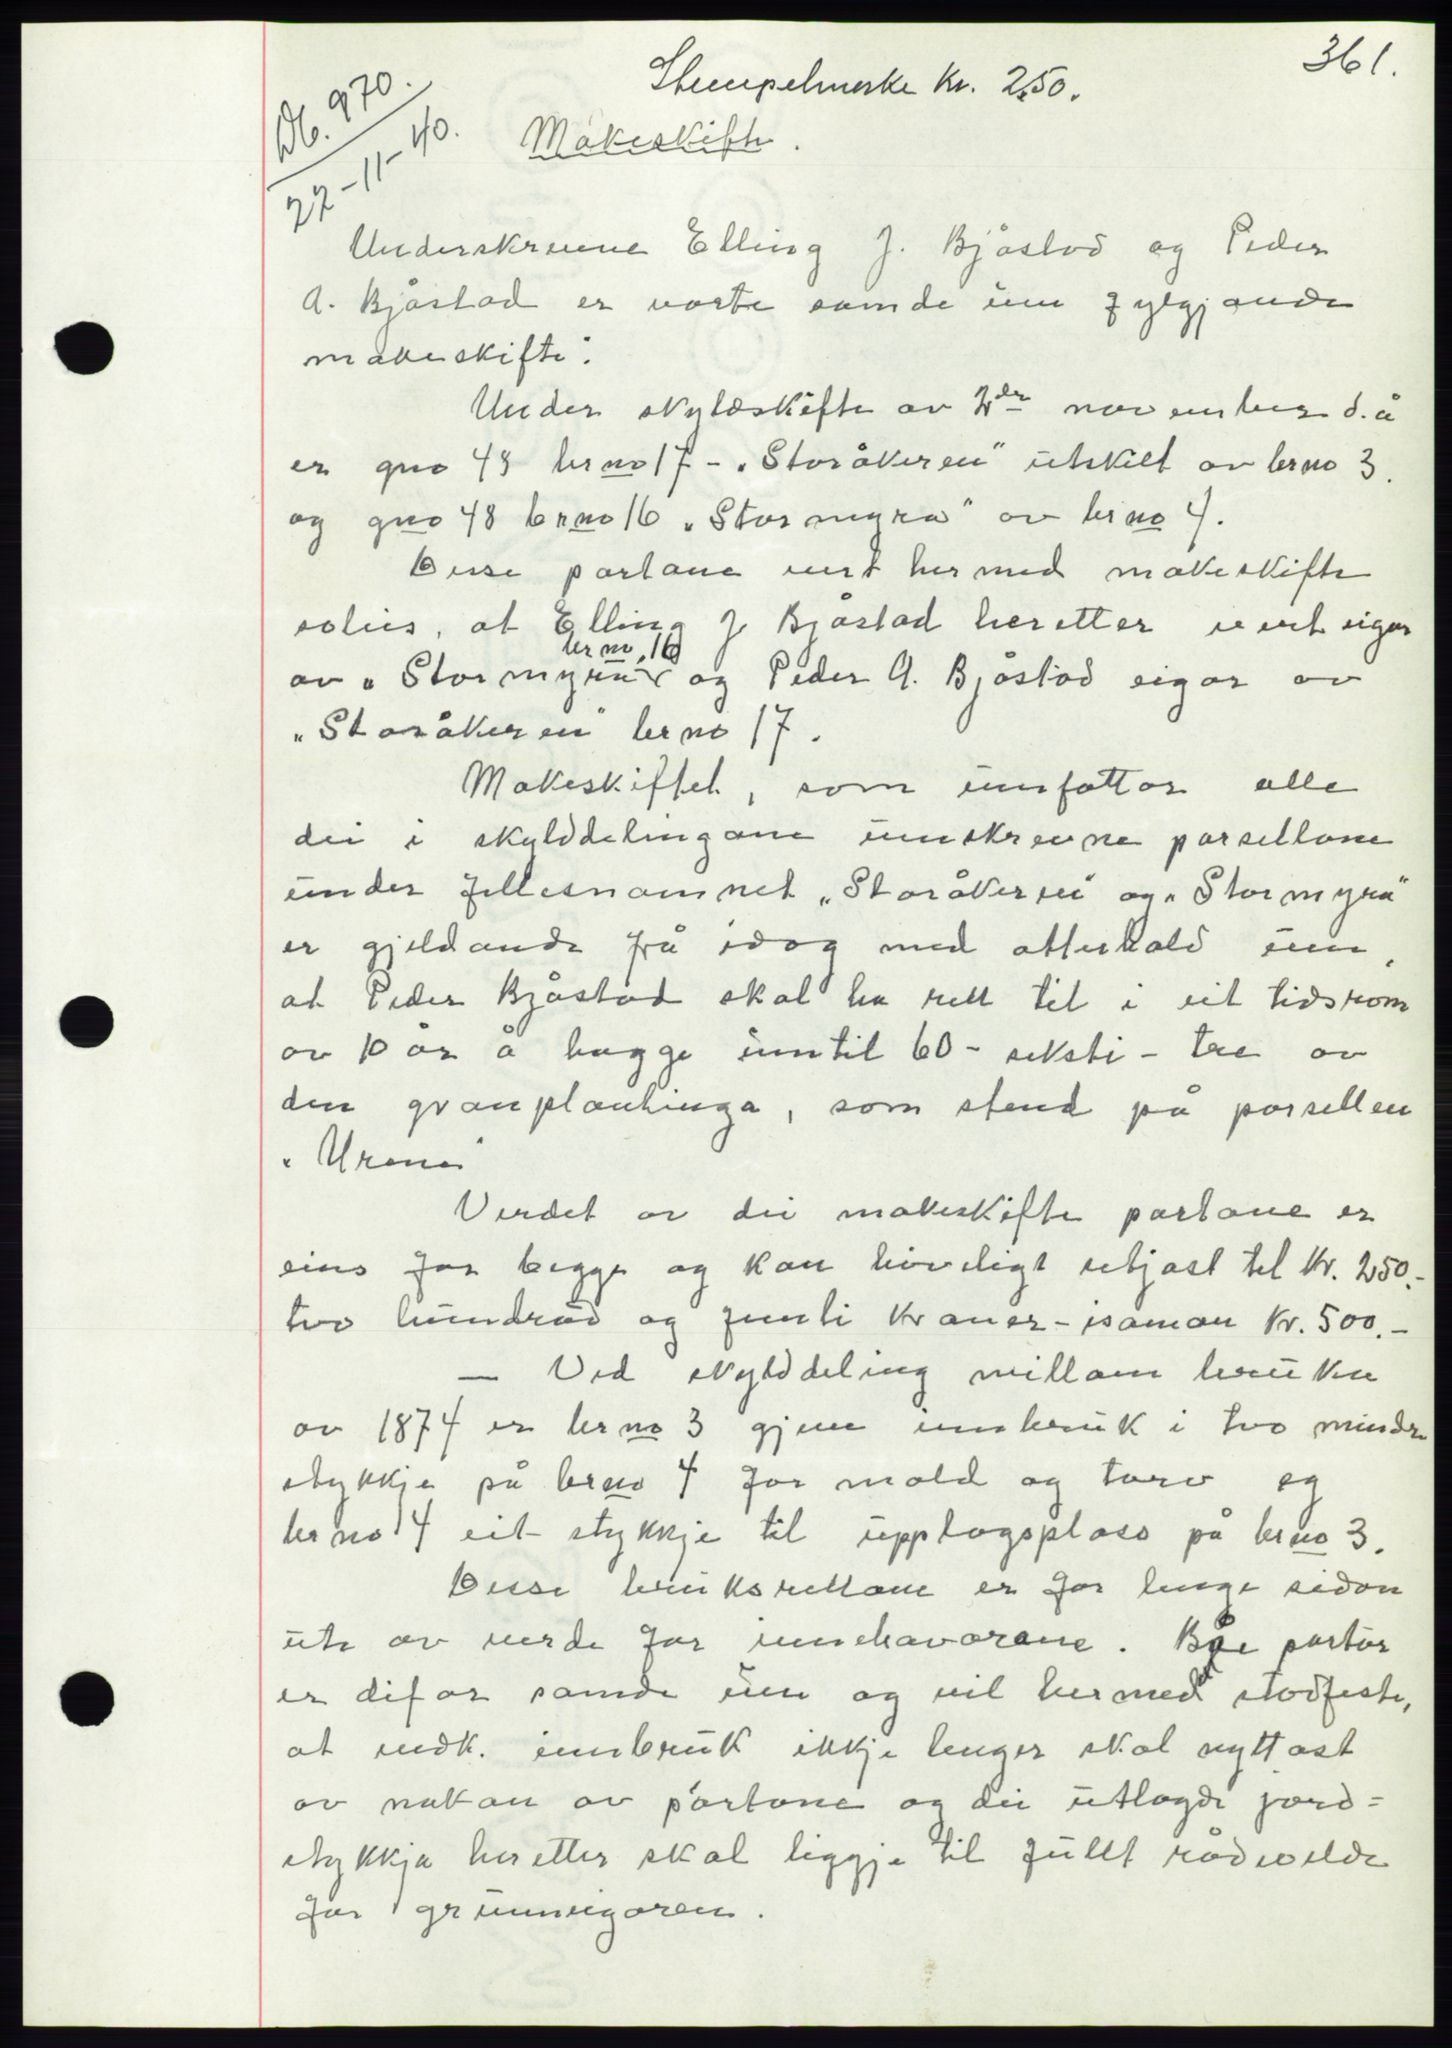 361.
Stempelmerke Kr. 2,50.
Db. 970.
22-11-40.
Makeskifte.
Underskrivne Elling J. Bjåstad og Peder
A. Bjåstad er vorte samde um fylgjande
makeskifte:
Under skyldskifte av 2dre november d.å
er gno 48 brno 17 - "Storåkeren" utskilt av brno 3.
og gno 48 brno 16 "Stormyra" av brno 4.
Desse partane vert hermed makeskifte
soleis, at Elling J Bjåstad heretter vert eigar
av "Stormyra" brno 16 og Peder A. Bjåstad eigar av
"Storåkeren" brno 17.
Makeskiftet, som umfattar alle
dei i skylddelingane umskrevne parsellane
under fellesnamnet "Storåkeren" og "Stormyra"
er gjeldande frå idag med atterhald um,
at Peder Bjåstad skal ha rett til i eit tidsrom
av 10 år å hogge inntil 60 - seksti - tre av
den granplantinga, som stend på parsellen
"Urane"
Verdet av dei makeskifte partane er
eins for begge og kan høveligt setjast til Kr. 250.-
tvo hundrad og femti kroner - isaman Kr. 500.-
— Ved skylddeling millom bruka
av 1874 er brno 3 gjeve innbruk i tvo mindre
stykkje på brno 4 for mold og torv og
brno 4 eit stykkje til upplagsplass på brno 3.
Desse bruksrettane er for lenge sidan
ute av verde for innehavarane. Båe partar
er difor samde um og vil hermed stadfeste,
at nedk. innbruk ikkje lenger skal nyttast
av nokon av partane og dei utlagde jord=
stykkja heretter skal liggje til fullt rådevelde
for grunneigaren.